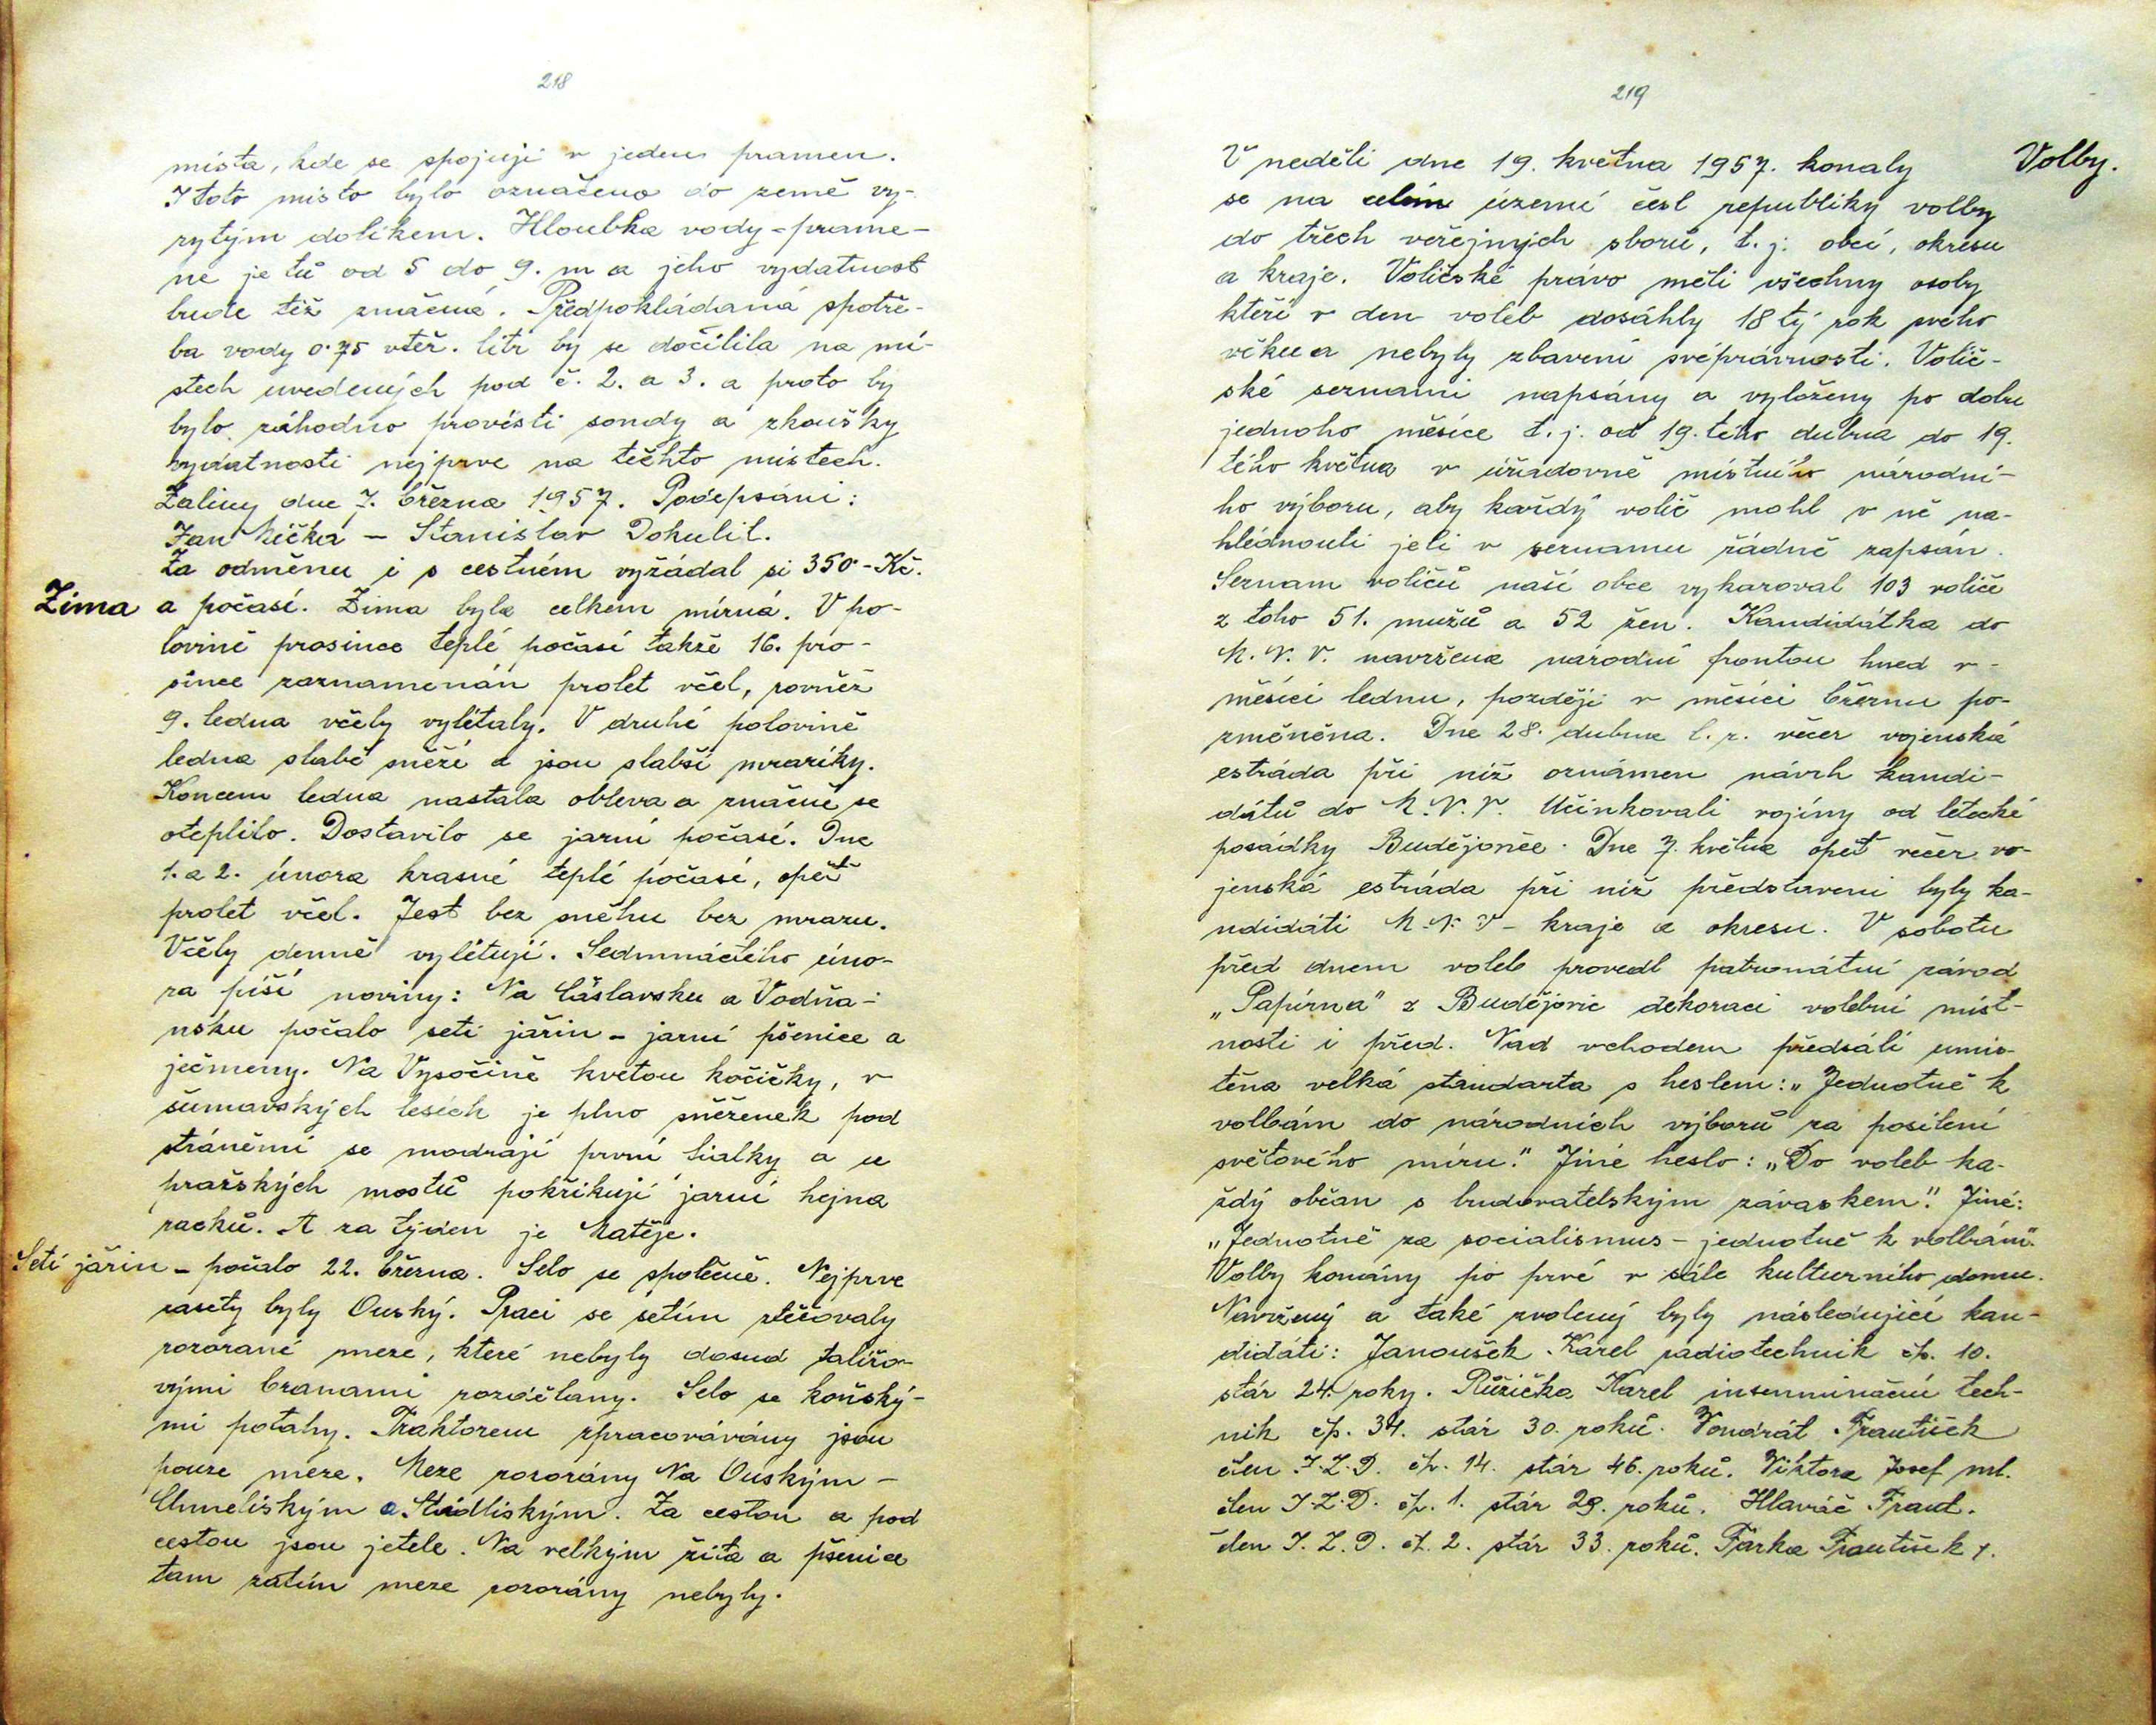 218
místa, kde se spojují v jeden pramen.
I toto místo bylo označeno do země vy-
rytým dolíkem. Hloubka vody - prame-
ne je tů od 5 do 9. m a jeho vydatnost
bude též značná. Předpokládaná spotře-
ba vody 0.75 vteř. litr by se docílila na mí-
stech uvedených pod č. 2. a 3. a proto by
bylo záhodno provésti sondy a zkoušky
vydatnosti nejprve na těchto místech.
Žaliny dne 7. března 1957. Podepsáni:
Jan Mička - Stanislav Dokulil.
Za odměnu i s cestném vyžádal si 350 - Kč.
Zima a počasí. Zima byla celkem mírná. V po-
lovině prosince teplé počasí takže 16. pro-
since zaznamenán prolet včel, rovněž
9. ledna včely vylétaly. V druhé polovině
ledna slabě sněží a jsou slabší mrazíky.
Koncem ledna nastala obleva a značně se
oteplilo. Dostavilo se jarní počasí. Dne
1. a 2. února krasné teplé počasí, opět
prolet včel. Jest bez sněhu bez mrazu.
Včely denně vylétují. Sedmnáctého úno-
ra píší noviny: Na Čáslavsku a Vodňa-
nsku počalo setí jařin - jarní pšenice a
ječmeny. Na Vysočině kvetou kočičky, v
šumavských lesích je plno sněženek pod
stráněmi se modrají první fialky a u
pražských mostů pokřikují jarní hejna
racků. A za týden je Matěje.
Setí jařin - počalo 22. března. Selo se společně. Nejprve
zasety byly Ouský. Praci se setím stěžovaly
rozorané meze, které nebyly dosud talířo-
vými branami rozdělany. Selo se koňský-
mi potahy. Traktorem zpracovávány jsou
pouze meze. Meze rozorány Na Ouským -
Chmeliským a Stádliským. Za cestou a pod
cestou jsou jetele. Na velkým žita a pšenice
tam zatím meze rozorány nebyly.
219
Volby.
V neděli dne 19. května 1957. konaly
se na celém území čsl republiky volby
do třech veřejných sborů, t. j. obcí, okresu
a kraje. Voličské právo měli všechny osoby
kteří v den voleb dosáhly 18 tý rok svého
věku a nebyly zbaveni svéprávnosti. Volič-
ské seznami napsány a vyloženy po dobu
jednoho měsíce t. j. od 19. tého dubna do 19.
tého května v úřadovně místního národní-
ho výboru, aby každý volič mohl v ně na-
hlédnouti jeli v seznamu řádně zapsán.
Seznam voličů naší obce vykazoval 103 voliče
z toho 51. mužů a 52 žen. Kandidátka do
M. N. V. navržena národní frontou hned v -
měsíci lednu, později v měsíci březnu po-
změněna. Dne 28. dubna t. r. večer vojenská
estráda při níž oznámen návrh kandi-
dátů do M. N. V. Učinkovali vojíny od letecké
posádky Budějovice. Dne 7. května opět večer vo-
jenská estráda při níž představeni byly ka-
ndidáti M. N. V - kraje a okresu. V sobotu
před dnem voleb provedl patronátní závod
„Papírna" z Budějovic dekoraci volební míst-
nosti i před. Nad vchodem předsálí umís-
těna velká standarta s heslem: „Jednotně k
volbám do národních výborů za posílení
světového míru." Jiné heslo: „Do voleb ka-
ždý občan s budovatelským závazkem." Jiné:
„Jednotně za socialismus - jednotně k volbám".
Volby konány po prvé v sále kulturního domu.
Navržený a také zvolený byly následující kan-
didáti: Janoušek Karel radiotechnik čp. 10.
stár 24. roky. Růžička Karel inseminační tech-
nik čp. 34. stár 30. roků. Vondrát František
člen J. Z. D. čp. 14. stár 46. roků. Viktora Josef ml.
člen J. Z. D. čp. 1. stár 29. roků. Hlaváč Frant.
člen J. Z. D. čp. 2. stár 33. roků. Farka František